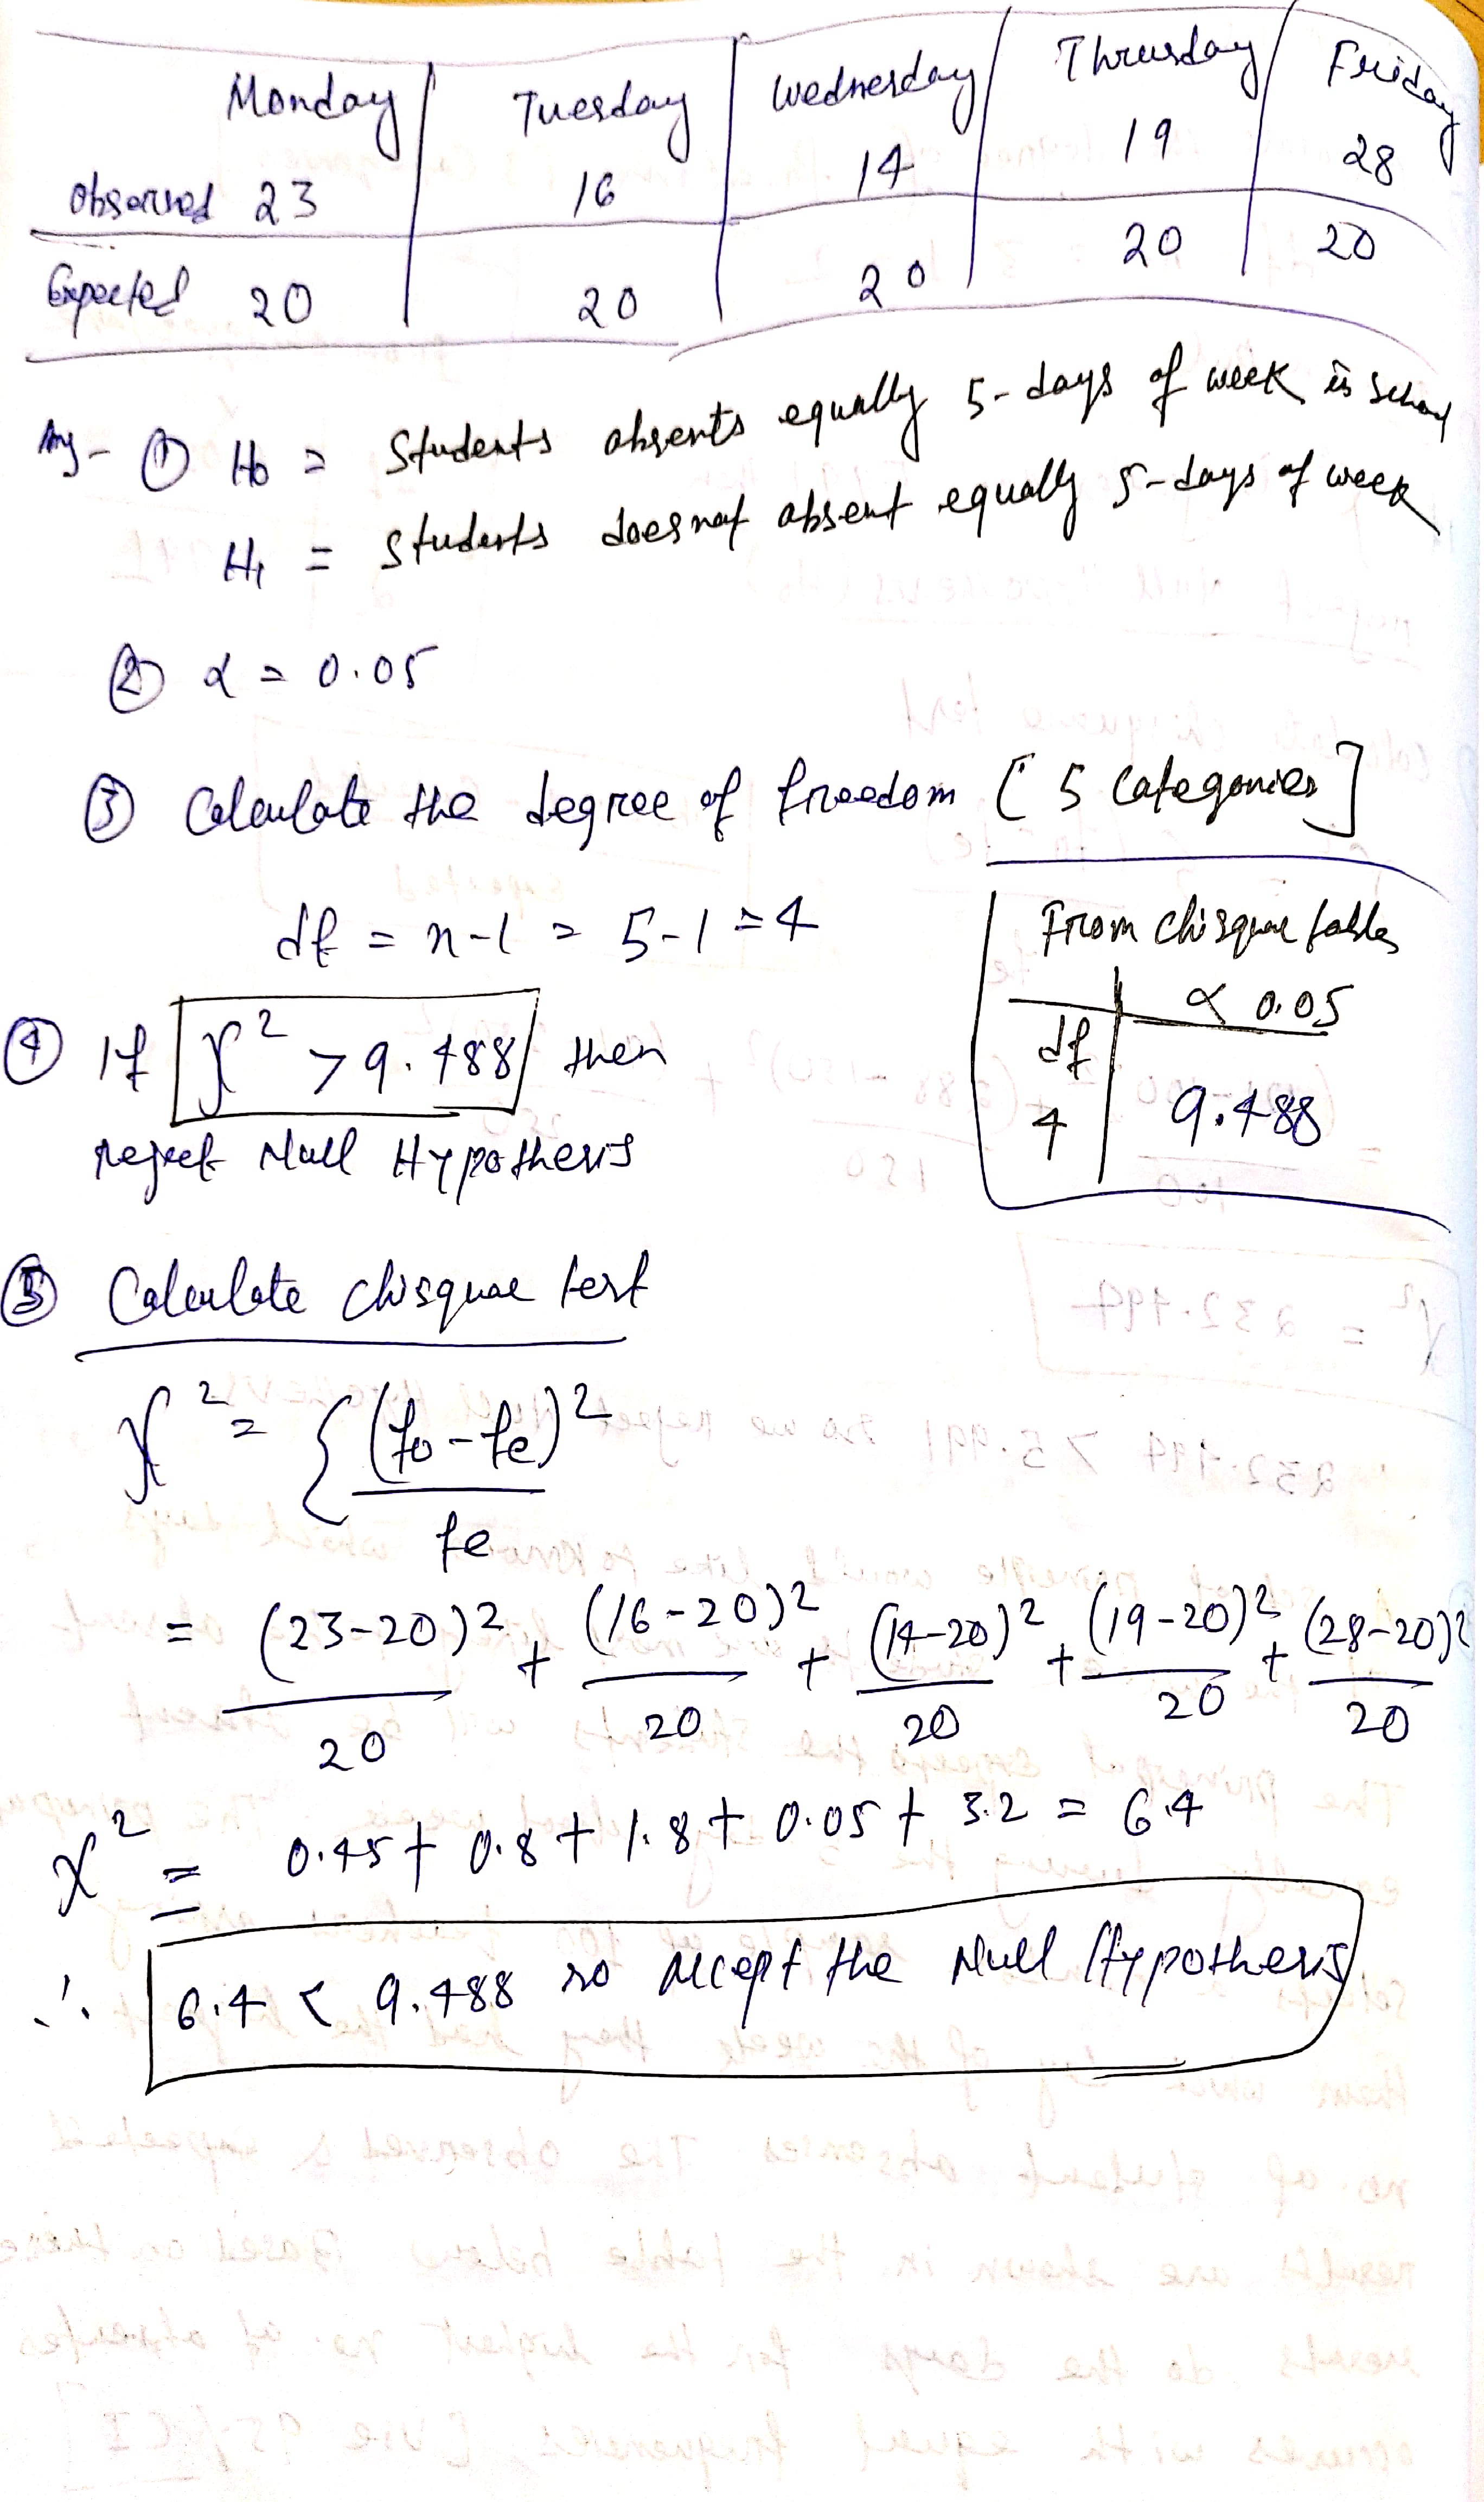 Monday Tuesday Wednesday Thrusday Friday
Observed 23 16 14 19 28
Expected 20 20 20 20 20
Ans- ① H0 = Students absents equally 5-days of week in School
H1 = Students does not absent equally 5-days of week
② α = 0.05
③ Calculate the degree of freedom [5 Categories]
df = n-1 = 5-1 = 4
From chisquare tables
α 0.05
df
4 9.488
④ If χ² > 9.488 then
reject Null Hypothesis
⑤ Calculate chisquare test
χ² = Σ (fo-fe)²
fe
= (23-20)² + (16-20)² + (14-20)² + (19-20)² + (28-20)²
20 20 20 20 20
χ² = 0.45 + 0.8 + 1.8 + 0.05 + 3.2 = 6.4
∴ 6.4 < 9.488 so accept the Null Hypothesis